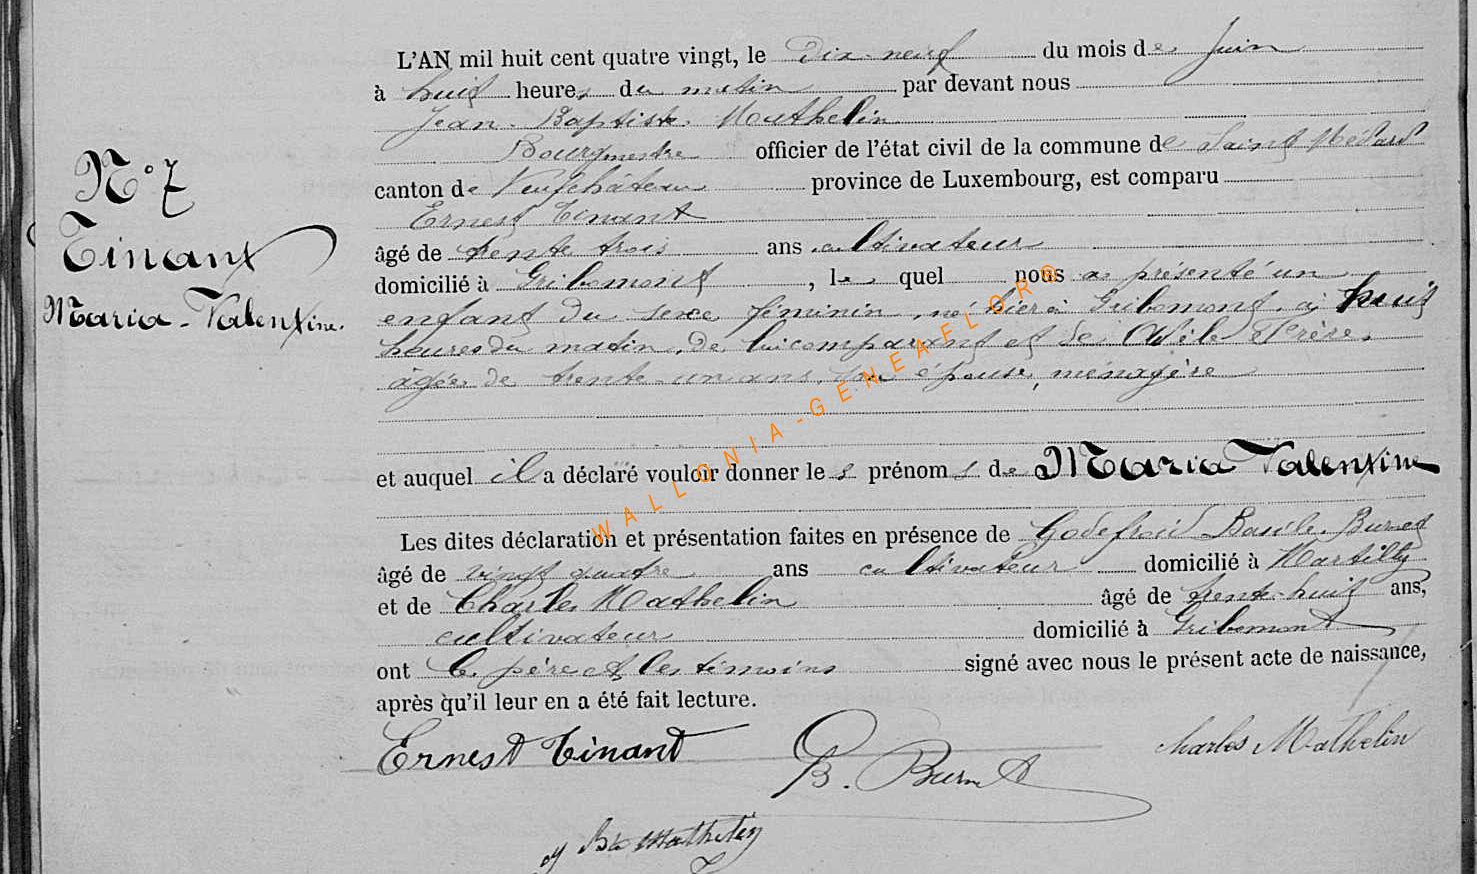 L'AN mil huit cent quatre vingt, le Dix neuf du mois de Juin
à huit heures du matin par devant nous
Jean Baptiste Mathelin
Bourgmestre officier de l'état civil de la commune de Saint Médard
canton de Neufchâteau province de Luxembourg, est comparu
Ernest Tinant
âgé de trente trois ans cultivateur
domicilié à Gribomont, lequel nous a présenté un
enfant du sexe féminin, né hier à Gribomont, à huit
heures du matin, de lui comparant et de Adèle Frère,
âgée de trente-un ans, son épouse, ménagère
et auquel il a déclaré vouloir donner les prénoms de Maria Valentine
Les dites déclaration et présentation faites en présence de Godefroid Burnet
âgé de vingt quatre ans cultivateur domicilié à Martilly
et de Charles Mathelin âgé de trente-huit ans,
cultivateur domicilié à Gribomont
ont le père et les témoins signé avec nous le présent acte de naissance,
après qu'il leur en a été fait lecture.
Ernest Tinant B. Burnet Charles Mathelin
J Bte Mathelin
N° 7
Tinant
Maria-Valentine.
WALLONIA-GENEAFLOR®